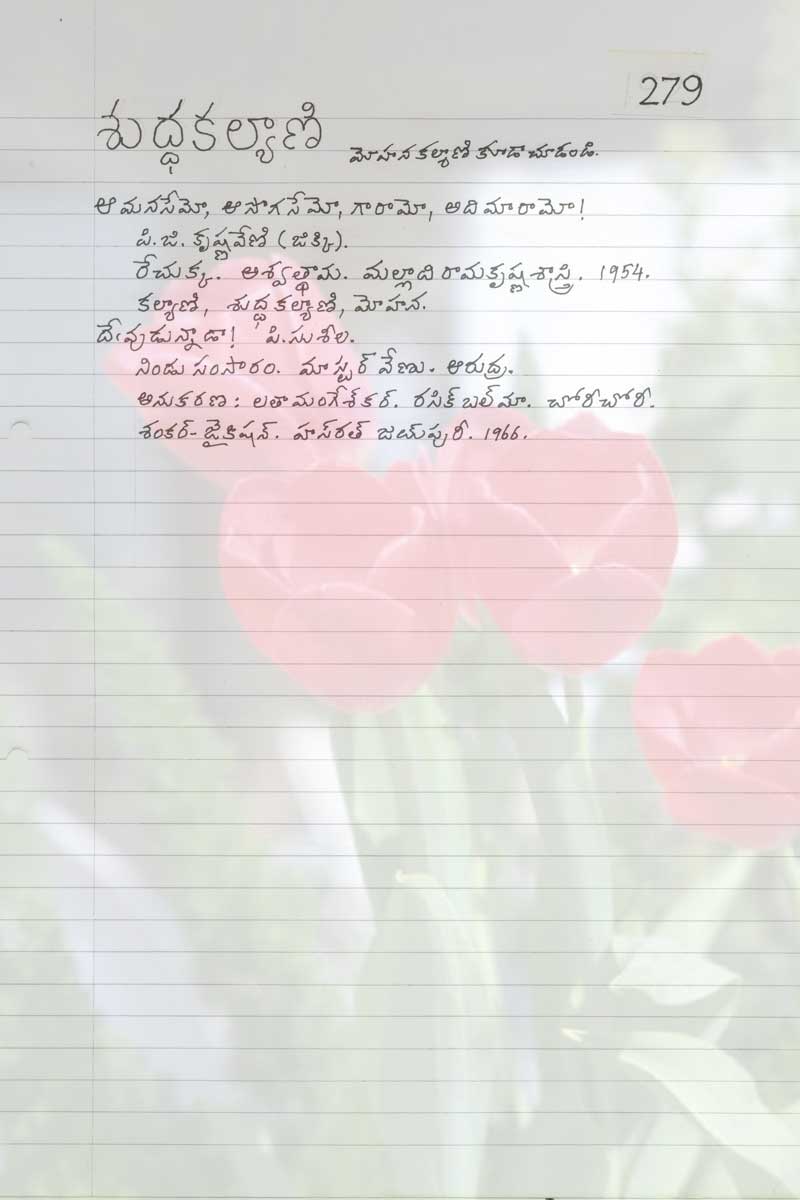 279
శుద్ధకల్యాణి
మోహనకల్యాణి కూడా చూడండి.
ఆ మనసేమో, ఆ సొగసేమో, గారామో, అది మారామో!
పి.జి. కృష్ణవేణి (జిక్కి).
రేచుక్క. అశ్వత్థామ. మల్లాది రామకృష్ణశాస్త్రి. 1954.
కల్యాణి, శుద్ధకల్యాణి, మోహన.
దేవుడున్నాడా! పి.సుశీల.
నిండు సంసారం. మాస్టర్ వేణు. ఆరుద్ర.
అనుకరణ: లతామంగేశ్‌కర్. రసిక్ బల్‌మా. చోరీచోరీ.
శంకర్-జైకిషన్. హస్‌రత్ జయ్‌పురీ. 1966.